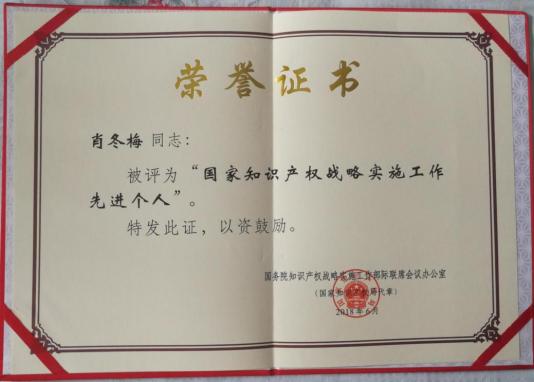 荣誉证书
肖冬梅 同志：
被评为“国家知识产权战略实施工作
先进个人”。
特发此证，以资鼓励。
国务院知识产权战略实施工作部际联席会议办公室
（国家知识产权局代章）
2018年6月